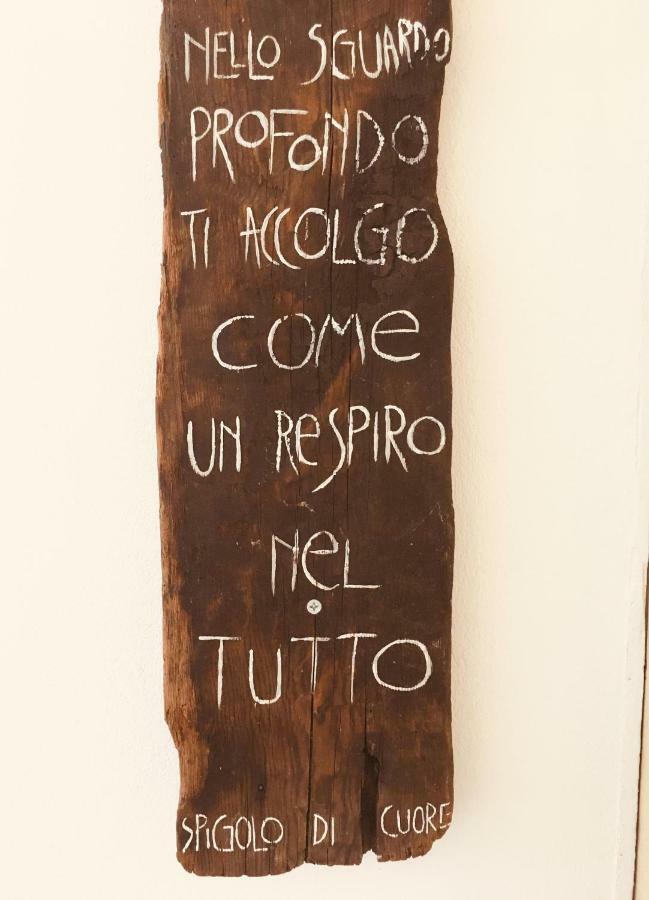 NELLO SGUARDO
PROFONDO
TI ACCOLGO
COMe
UN ReSPIRO
NeL
TUTTO
SPiGOLO DI CUORE